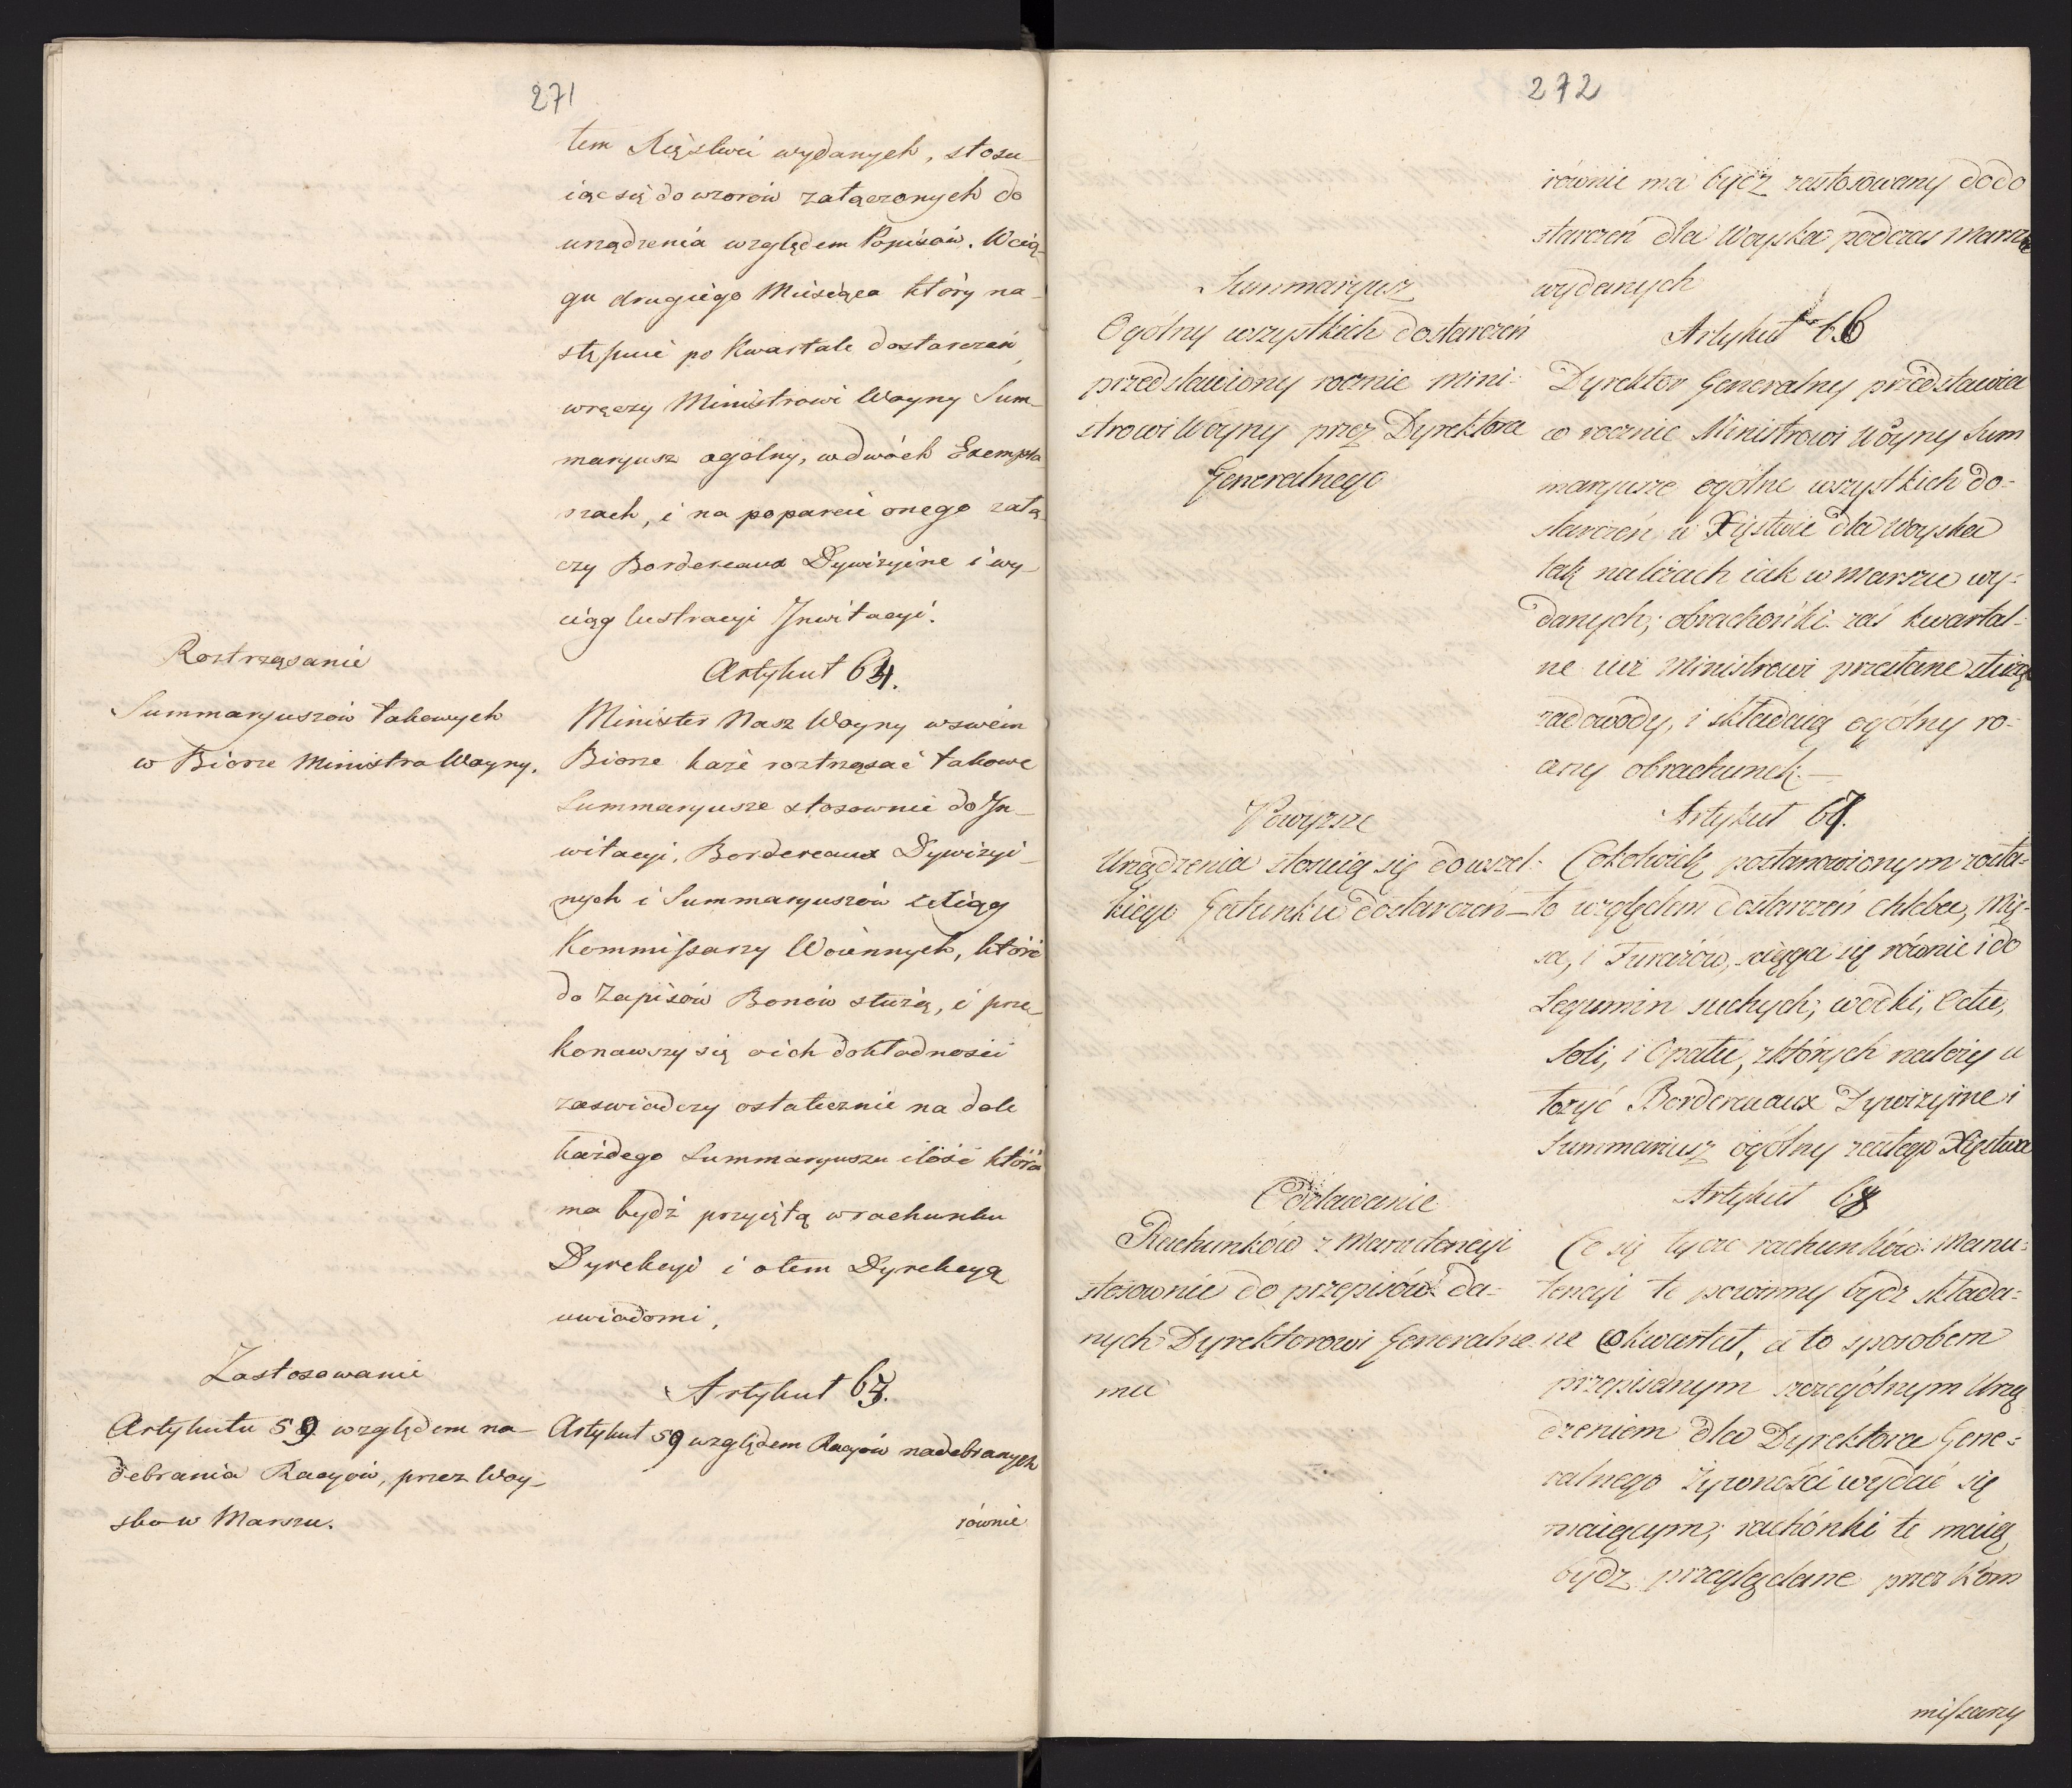 271
tem Xięstwie wydanych, stosu-
iąc się do wzorów załączonych do
urządzenia względem Popisów. W cią-
gu drugiego Miesiąca który na-
stępuie po Kwartale dostarczeń,
wręczy Ministrowi Woyny Sum-
maryusz ogólny, w dwóch Exempla-
rzach, i na poparcie onego załą-
czy Bordereaux Dywizyine i wy-
ciąg lustracyi Inwitacyi.
Roztrząsanie
Summaryuszów takowych
w Biorze Ministra Woyny.
Artykuł 64.
Minister Nasz Woyny w swéim
Biorze każe roztrząsać takowe
Summaryusze stosownie do In-
witacyi, Bordereaux Dywizyi-
nych i Summaryuszów xiąg
Kommissarzy Woiennych, któré
do Zapisów Bonów służą, i prze-
konawszy się o ich dokładności
zaswiadczy ostatecznie na dole
każdego Summaryuszu ilość która
ma bydź przyiętą w rachunku
Dyrekcyi i o tem Dyrekcyą
uwiadomi.
Zastosowanie
Artykułu 59 względem na-
debrania Racyów, przez Woy-
sko w Marszu.
Artykuł 65.
Artykuł 59 względem Racyów nadebranych
równie
272
równie ma bydź zastosowany do do
starczeń dla Woyska podczas Marszu
wydanych
Summaryusz
Ogólny wszystkich dostarczeń
przedstawiony rocznie Mini-
strowi Woyny przez Dyrektora
Generalnego
Artykuł 66
Dyrektor Generalny przedstawia
co rocznie Ministrowi Woyny Sum
maryusze ogólne wszystkich do-
starczeń w Xięstwie dla Woyska
tak na leżach iak w Marszu wy-
danych; obrachonki zaś kwartal-
ne iuż Ministrowi przesłane służą
za dowody, i składaią ogólny ro-
czny obrachunek.—
Powyższe
Urządzenia stosuią się do wszel-
kiego Gatunku dostarczeń
Artykuł 67.
Cokolwiek postanowionym zosta-
ło względem dostarczeń chleba, Mię-
sa, i Furażów, ściąga się równie i do
Legumin suchych, wodki, Octu,
Soli, i Opału, z których należy u
łożyć Bordereaux Dywizyine i
Summariusz ogólny z całego Xięstwa
Oddawanie
Rachunków z Manutencyi
stosownie do przepisów da-
nych Dyrektorowi Generalne
mu
Artykuł 68
Co się tycze rachunków Manu-
tencyi te powinny bydź składa-
ne co kwartał, a to sposobem
przepisanym szczególnym Urzą
dzeniem dla Dyrektora Gene-
ralnego Żywności wydać się
maiącym; rachónki te maią
bydź przeglądane przez Kom
missarzy